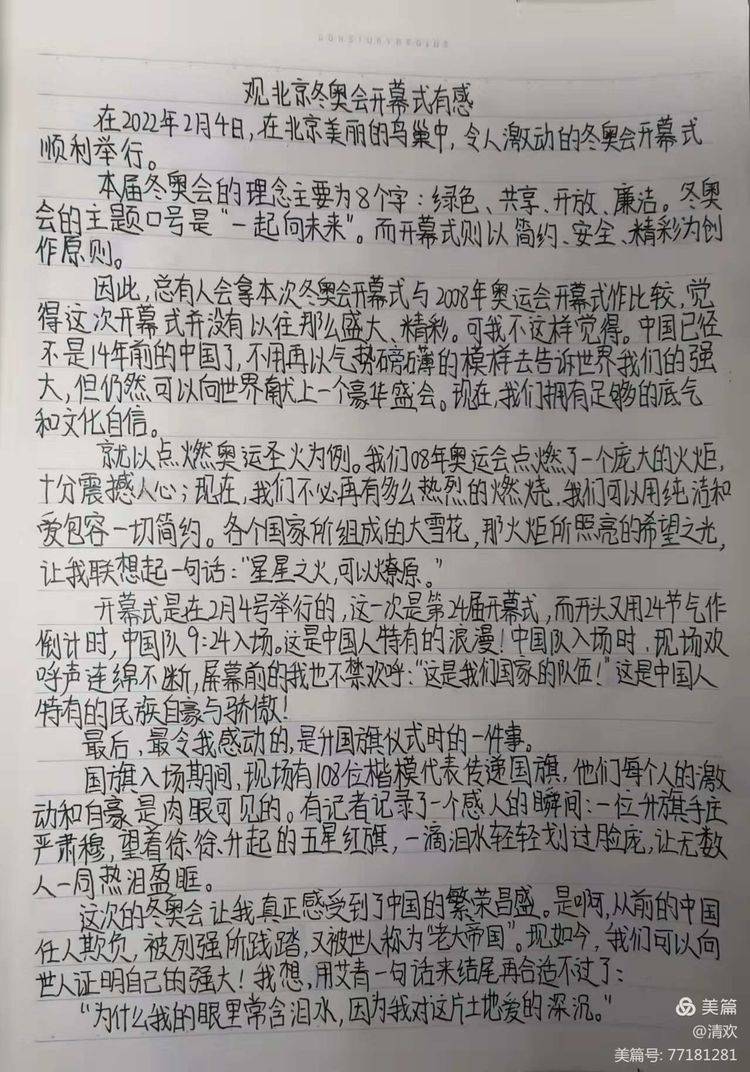 观北京冬奥会开幕式有感
在2022年2月4日,在北京美丽的鸟巢中,令人激动的冬奥会开幕式
顺利举行。
本届冬奥会的理念主要为8个字:绿色、共享、开放、廉洁。冬奥
会的主题口号是“一起向未来”。而开幕式则以简约、安全、精彩为创
作原则。
因此,总有人会拿本次冬奥会开幕式与2008年奥运会开幕式作比较,觉
得这次开幕式并没有以往那么盛大、精彩。可我不这样觉得。中国已经
不是14年前的中国了,不用再以气势磅礴的模样去告诉世界我们的强
大,但仍然可以向世界献上一个豪华盛会。现在,我们拥有足够的底气
和文化自信。
就以点燃奥运圣火为例。我们08年奥运会点燃了一个庞大的火炬,
十分震撼人心;现在,我们不必再有多么热烈的燃烧,我们可以用纯洁和
爱包容一切简约。各个国家所组成的大雪花,那火炬所照亮的希望之光,
让我联想起一句话:“星星之火,可以燎原。”
开幕式是在2月4号举行的,这一次是第24届开幕式,而开头又用24节气作
倒计时,中国队9:24入场。这是中国人特有的浪漫!中国队入场时,现场欢
呼声连绵不断,屏幕前的我也不禁欢呼:“这是我们国家的队伍!”这是中国人
特有的民族自豪与骄傲!
最后,最令我感动的,是升国旗仪式时的一件事。
国旗入场期间,现场有108位楷模代表传递国旗,他们每个人的激
动和自豪是肉眼可见的。有记者记录了一个感人的瞬间:一位升旗手庄
严肃穆,望着徐徐升起的五星红旗,一滴泪水轻轻划过脸庞,让无数
人一同热泪盈眶。
这次的冬奥会让我真正感受到了中国的繁荣昌盛。是啊,从前的中国
任人欺负,被列强所践踏,又被世人称为“老大帝国”。现如今,我们可以向
世人证明自己的强大!我想,用艾青一句话来结尾再合适不过了:
“为什么我的眼里常含泪水,因为我对这片土地爱的深沉。”
美篇
@清欢
美篇号: 77181281